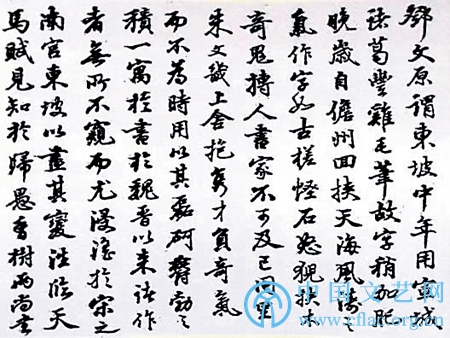 鄧文原謂東坡中年用宣城
諸葛豐雞毛筆故字稍加肥
晚歲自儋州回挾天海風濤之
氣作字如古槎怪石怒猊抉木
奇鬼搏人書家不可及已同里
朱文上舍抱秀才負奇氣
而不為時用以其磊砢鬱勃之
積一寓於書於魏晉以來諸作
者無所不窺而尤浸淫於宋之
南宮東坡以盡其變法臨天
馬賦見知於歸愚香樹兩尚書
中国文艺网
www.cflac.org.cn